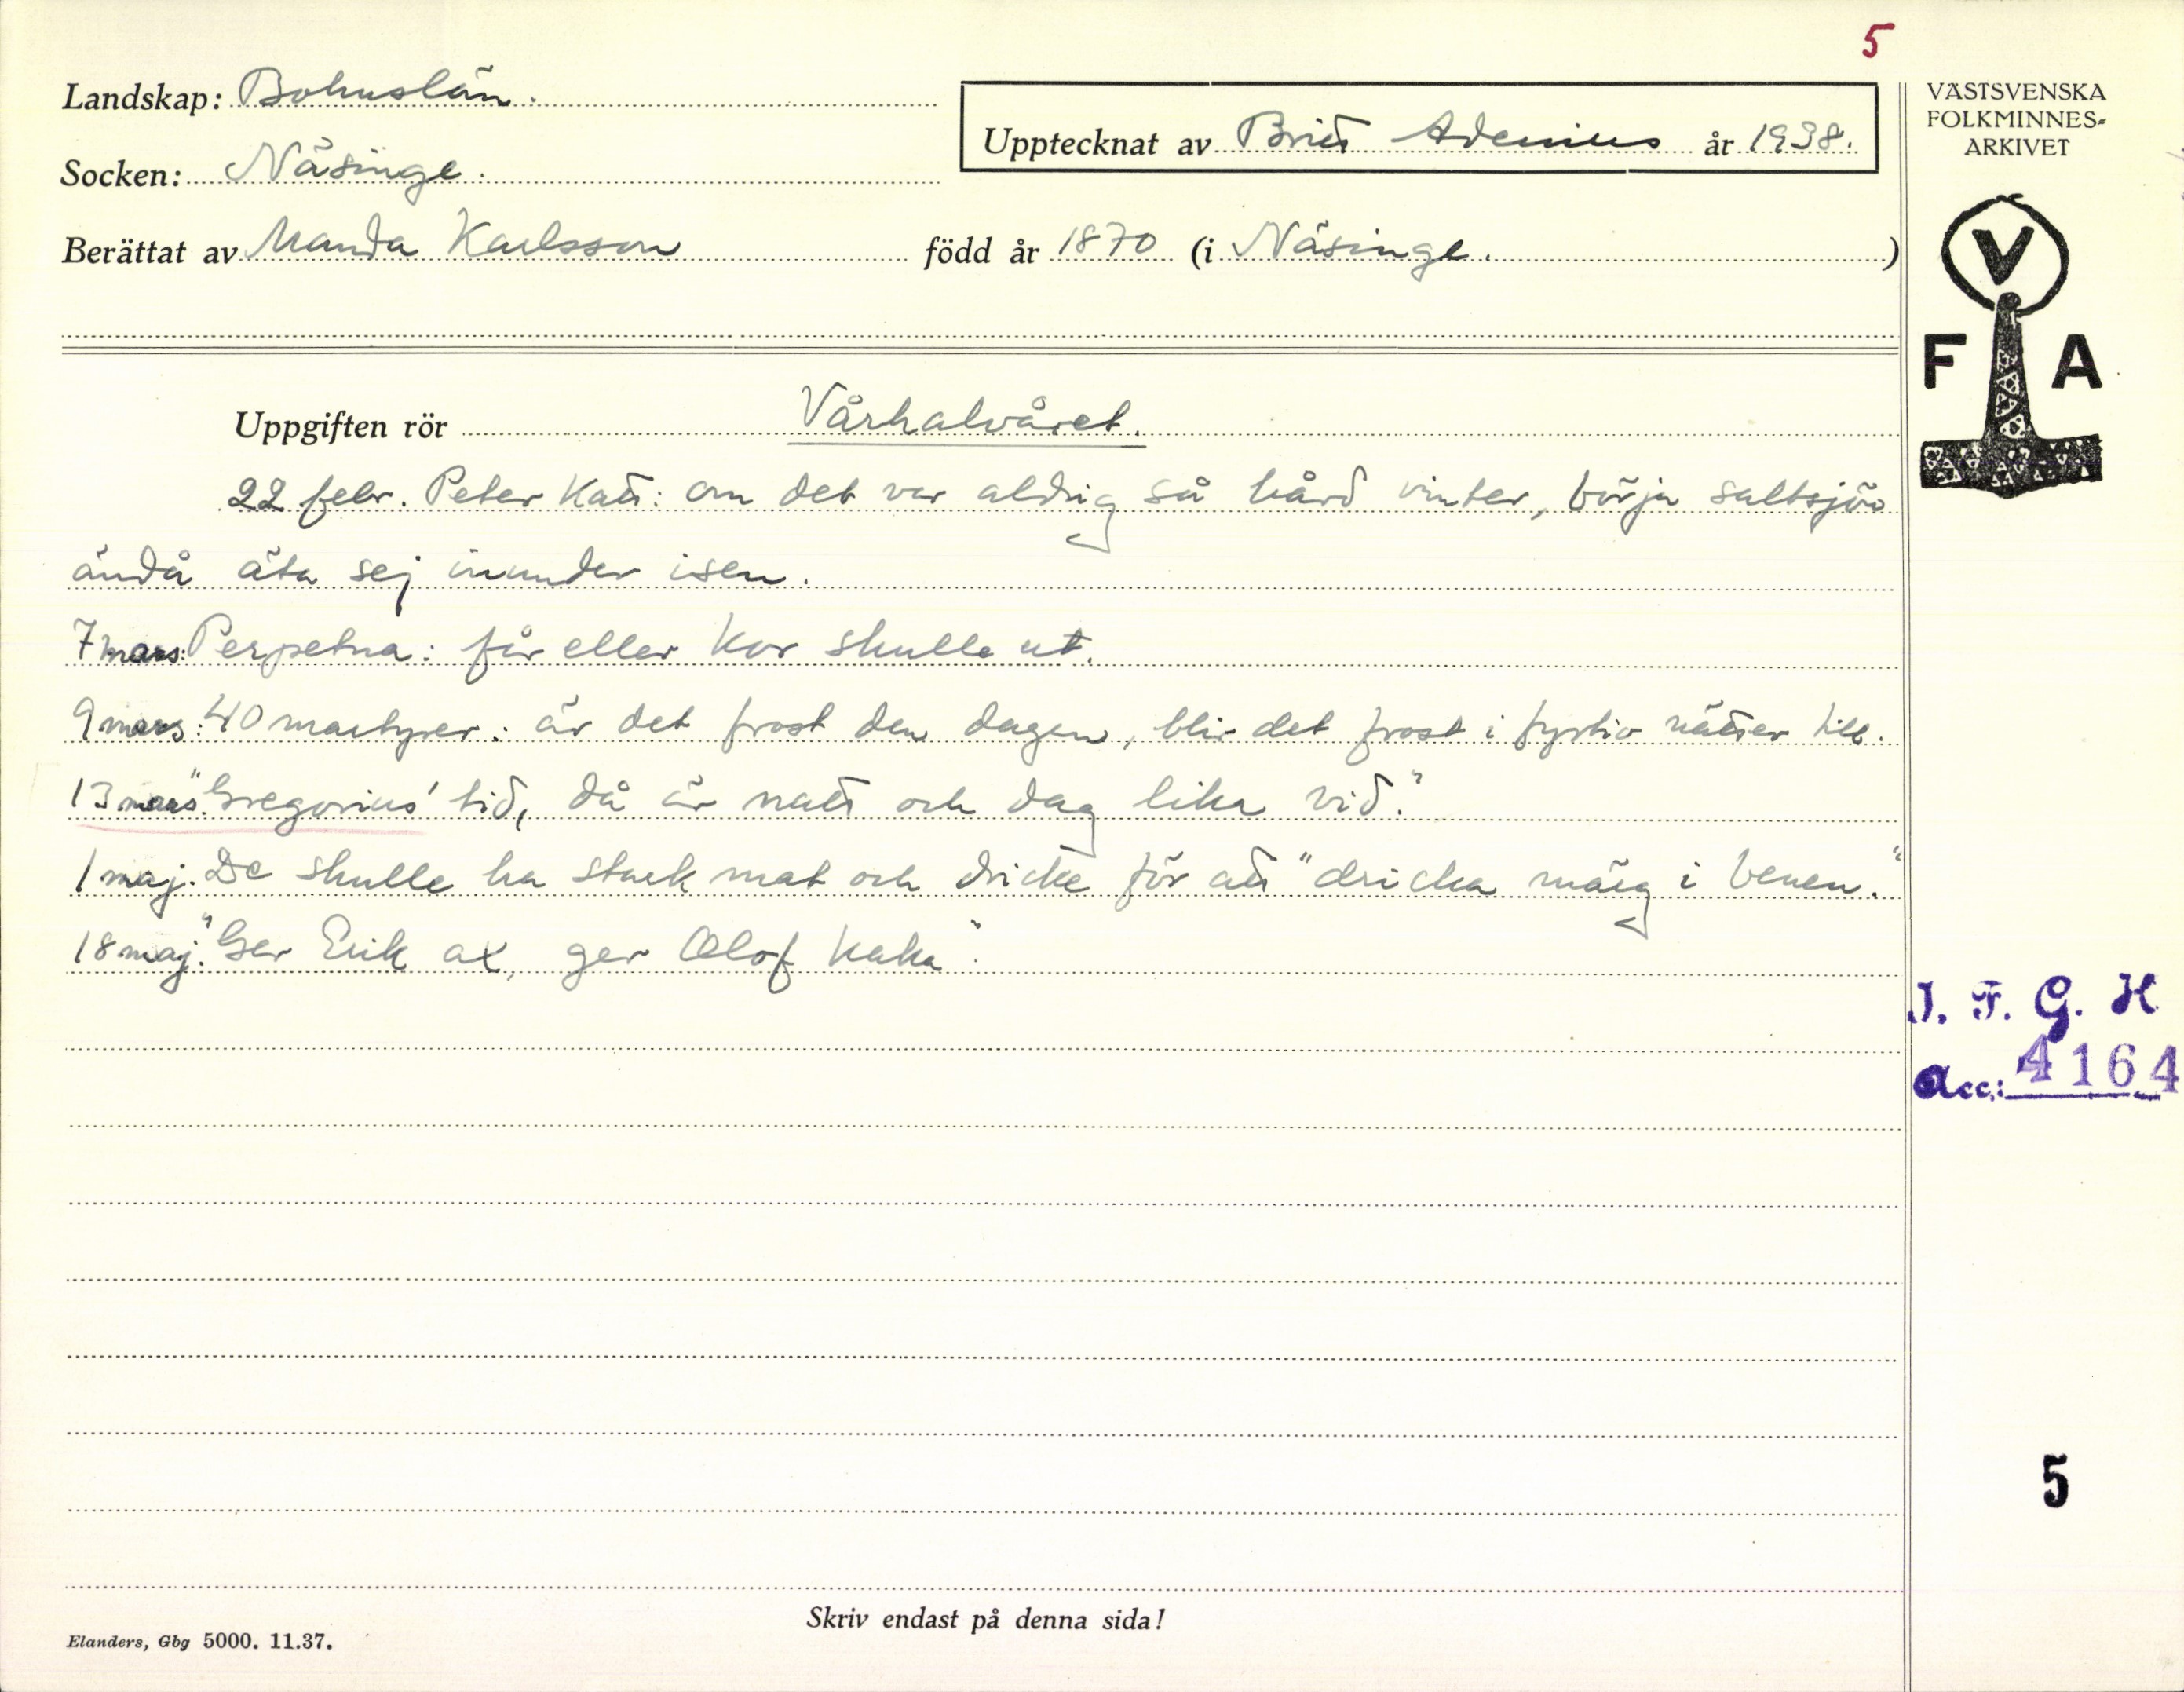 5
Landskap: Bohuslän.
Upptecknat av Britt Adenius år 1938.
Socken: Näsinge.
Berättat av Manda Karlsson född år 1870 (i Näsinge.)
VÄSTSVENSKA
FOLKMINNES-
ARKIVET
V
F A
Uppgiften rör Vårhalvåret.
22 febr. Peter Katt: om det var aldrig så hård vinter, börja saltsjön
ändå äta sej inunder isen.
7 mars: Perpetua: får eller kor skulle ut.
9 mars: 40 martyrer: är det frost den dagen, blir det frost i fyrtio nätter till.
13 mars: "Gregorius' tid, då är natt och dag lika vid."
1 maj. De skulle ha stark mat och dricke för att "dricka märg i benen."
18 maj: "Ger Erik ax, ger Olof kaka".
I. F. G. H
Acc.: 4164
5
Skriv endast på denna sida!
Elanders, Gbg 5000. 11.37.